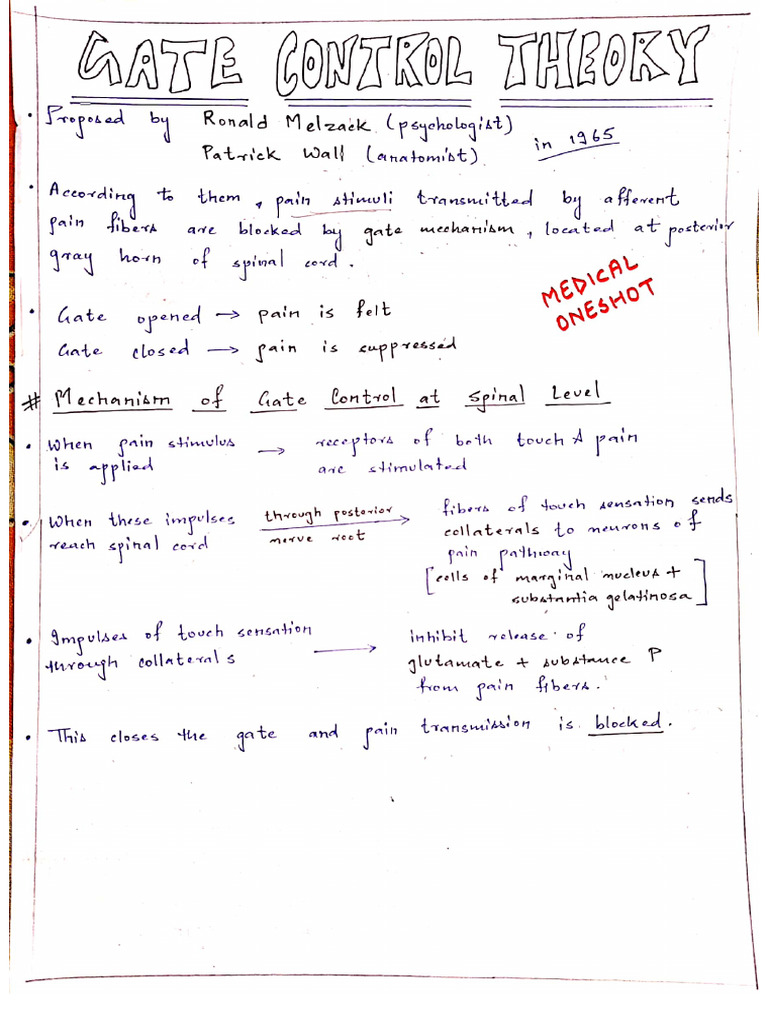 GATE CONTROL THEORY
• Proposed by Ronald Melzack (psychologist)
Patrick Wall (anatomist)
in 1965
• According to them, pain stimuli transmitted by afferent
pain fibers are blocked by gate mechanism, located at posterior
gray horn of spinal cord.
• Gate opened → pain is felt
Gate closed → pain is suppressed
MEDICAL
ONESHOT
# Mechanism of Gate Control at Spinal Level
• When pain stimulus → receptors of both touch & pain
is applied are stimulated
• When these impulses through posterior fibers of touch sensation sends
reach spinal cord nerve root → collaterals to neurons of
pain pathway
[cells of marginal nucleus +
substantia gelatinosa]
• Impulses of touch sensation → inhibit release of
through collaterals glutamate + substance P
from pain fibers.
• This closes the gate and pain transmission is blocked.